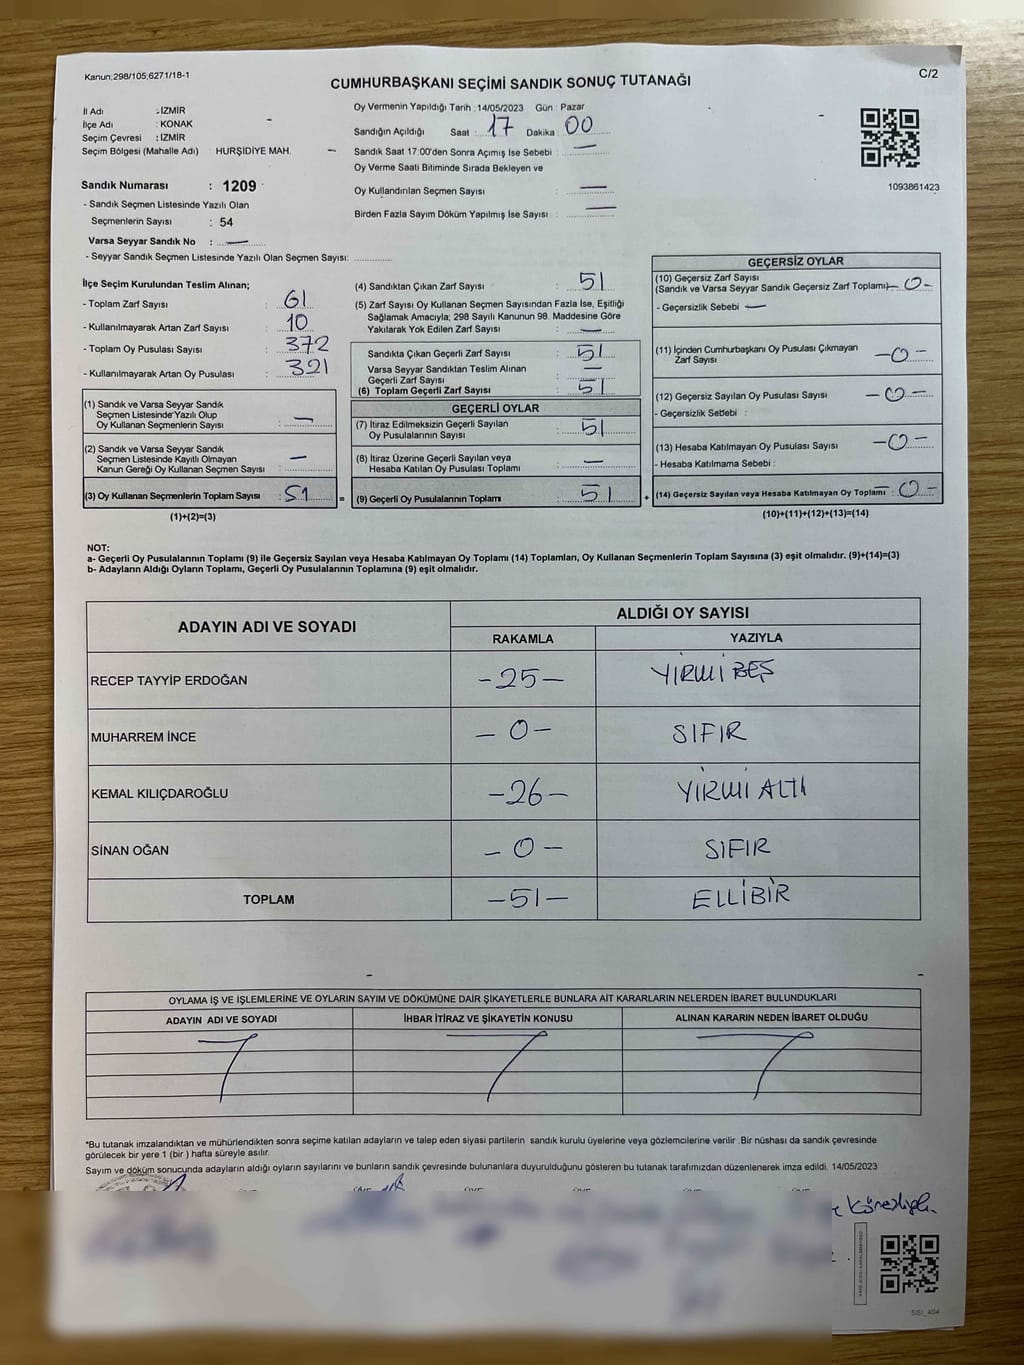 Kanun:298/105;6271/18-1
C/2
CUMHURBAŞKANI SEÇİMİ SANDIK SONUÇ TUTANAĞI
İl Adı : İZMİR
İlçe Adı : KONAK
Seçim Çevresi : İZMİR
Seçim Bölgesi (Mahalle Adı) HURŞİDİYE MAH.
Sandık Numarası : 1209
- Sandık Seçmen Listesinde Yazılı Olan
Seçmenlerin Sayısı : 54
Varsa Seyyar Sandık No : —
- Seyyar Sandık Seçmen Listesinde Yazılı Olan Seçmen Sayısı:
Oy Vermenin Yapıldığı Tarih : 14/05/2023 Gün : Pazar
Sandığın Açıldığı Saat : 17 Dakika : 00
Sandık Saat 17:00'den Sonra Açımış İse Sebebi : —
Oy Verme Saati Bitiminde Sırada Bekleyen ve
Oy Kullandırılan Seçmen Sayısı : —
Birden Fazla Sayım Döküm Yapılmış İse Sayısı : —
1093861423
İlçe Seçim Kurulundan Teslim Alınan;
- Toplam Zarf Sayısı : 61
- Kullanılmayarak Artan Zarf Sayısı : 10
- Toplam Oy Pusulası Sayısı : 372
- Kullanılmayarak Artan Oy Pusulası : 321
(1) Sandık ve Varsa Seyyar Sandık
Seçmen Listesinde Yazılı Olup
Oy Kullanan Seçmenlerin Sayısı : —
(2) Sandık ve Varsa Seyyar Sandık
Seçmen Listesinde Kayıtlı Olmayan
Kanun Gereği Oy Kullanan Seçmen Sayısı : —
(3) Oy Kullanan Seçmenlerin Toplam Sayısı : 51 =
(1)+(2)=(3)
(4) Sandıktan Çıkan Zarf Sayısı : 51
(5) Zarf Sayısı Oy Kullanan Seçmen Sayısından Fazla İse, Eşitliği
Sağlamak Amacıyla; 298 Sayılı Kanunun 98. Maddesine Göre
Yakılarak Yok Edilen Zarf Sayısı : —
Sandıkta Çıkan Geçerli Zarf Sayısı : 51
Varsa Seyyar Sandıktan Teslim Alınan
Geçerli Zarf Sayısı : —
(6) Toplam Geçerli Zarf Sayısı : 51
GEÇERLİ OYLAR
(7) İtiraz Edilmeksizin Geçerli Sayılan
Oy Pusulalarının Sayısı : 51
(8) İtiraz Üzerine Geçerli Sayılan veya
Hesaba Katılan Oy Pusulası Toplamı : —
(9) Geçerli Oy Pusulalarının Toplamı : 51 +
GEÇERSİZ OYLAR
(10) Geçersiz Zarf Sayısı
(Sandık ve Varsa Seyyar Sandık Geçersiz Zarf Toplamı) -0-
- Geçersizlik Sebebi —
(11) İçinden Cumhurbaşkanı Oy Pusulası Çıkmayan
Zarf Sayısı -0-
(12) Geçersiz Sayılan Oy Pusulası Sayısı -0-
- Geçersizlik Sebebi :
(13) Hesaba Katılmayan Oy Pusulası Sayısı -0-
- Hesaba Katılmama Sebebi :
(14) Geçersiz Sayılan veya Hesaba Katılmayan Oy Toplamı : -0-
(10)+(11)+(12)+(13)=(14)
NOT:
a- Geçerli Oy Pusulalarının Toplamı (9) ile Geçersiz Sayılan veya Hesaba Katılmayan Oy Toplamı (14) Toplamları, Oy Kullanan Seçmenlerin Toplam Sayısına (3) eşit olmalıdır. (9)+(14)=(3)
b- Adayların Aldığı Oyların Toplamı, Geçerli Oy Pusulalarının Toplamına (9) eşit olmalıdır.
ADAYIN ADI VE SOYADI
ALDIĞI OY SAYISI
RAKAMLA YAZIYLA
RECEP TAYYİP ERDOĞAN -25- YİRMİ BEŞ
MUHARREM İNCE -0- SIFIR
KEMAL KILIÇDAROĞLU -26- YİRMİ ALTI
SİNAN OĞAN -0- SIFIR
TOPLAM -51- ELLİBİR
OYLAMA İŞ VE İŞLEMLERİNE VE OYLARIN SAYIM VE DÖKÜMÜNE DAİR ŞİKAYETLERLE BUNLARA AİT KARARLARIN NELERDEN İBARET BULUNDUKLARI
ADAYIN ADI VE SOYADI İHBAR İTİRAZ VE ŞİKAYETİN KONUSU ALINAN KARARIN NEDEN İBARET OLDUĞU
*Bu tutanak imzalandıktan ve mühürlendikten sonra seçime katılan adayların ve talep eden siyasi partilerin sandık kurulu üyelerine veya gözlemcilerine verilir .Bir nüshası da sandık çevresinde
görülecek bir yere 1 (bir ) hafta süreyle asılır.
Sayım ve döküm sonucunda adayların aldığı oyların sayılarını ve bunların sandık çevresinde bulunanlara duyurulduğunu gösteren bu tutanak tarafımızdan düzenlenerek imza edildi. 14/05/2023
SİSİ_404